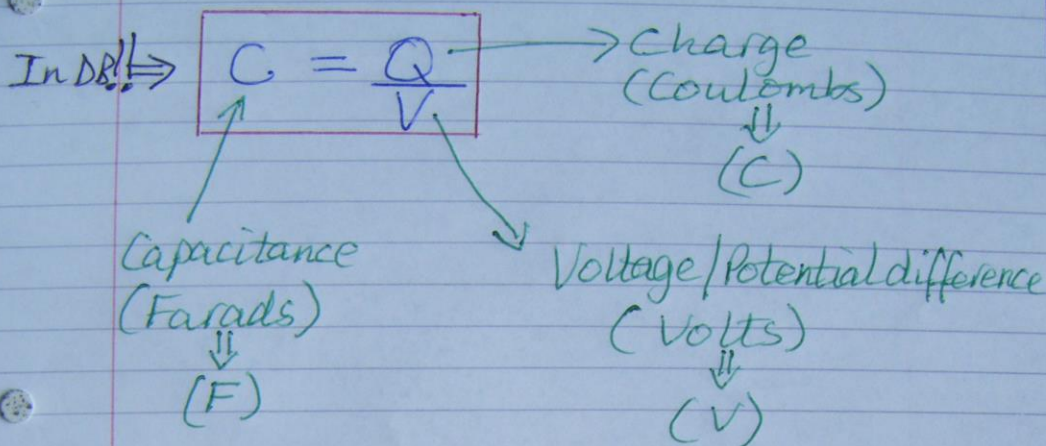 In DB!! ⇒ C = Q/V → Charge
(Coulombs)
⇓
(C)
Capacitance
(Farads)
⇓
(F)
Voltage/Potential difference
(Volts)
⇓
(V)